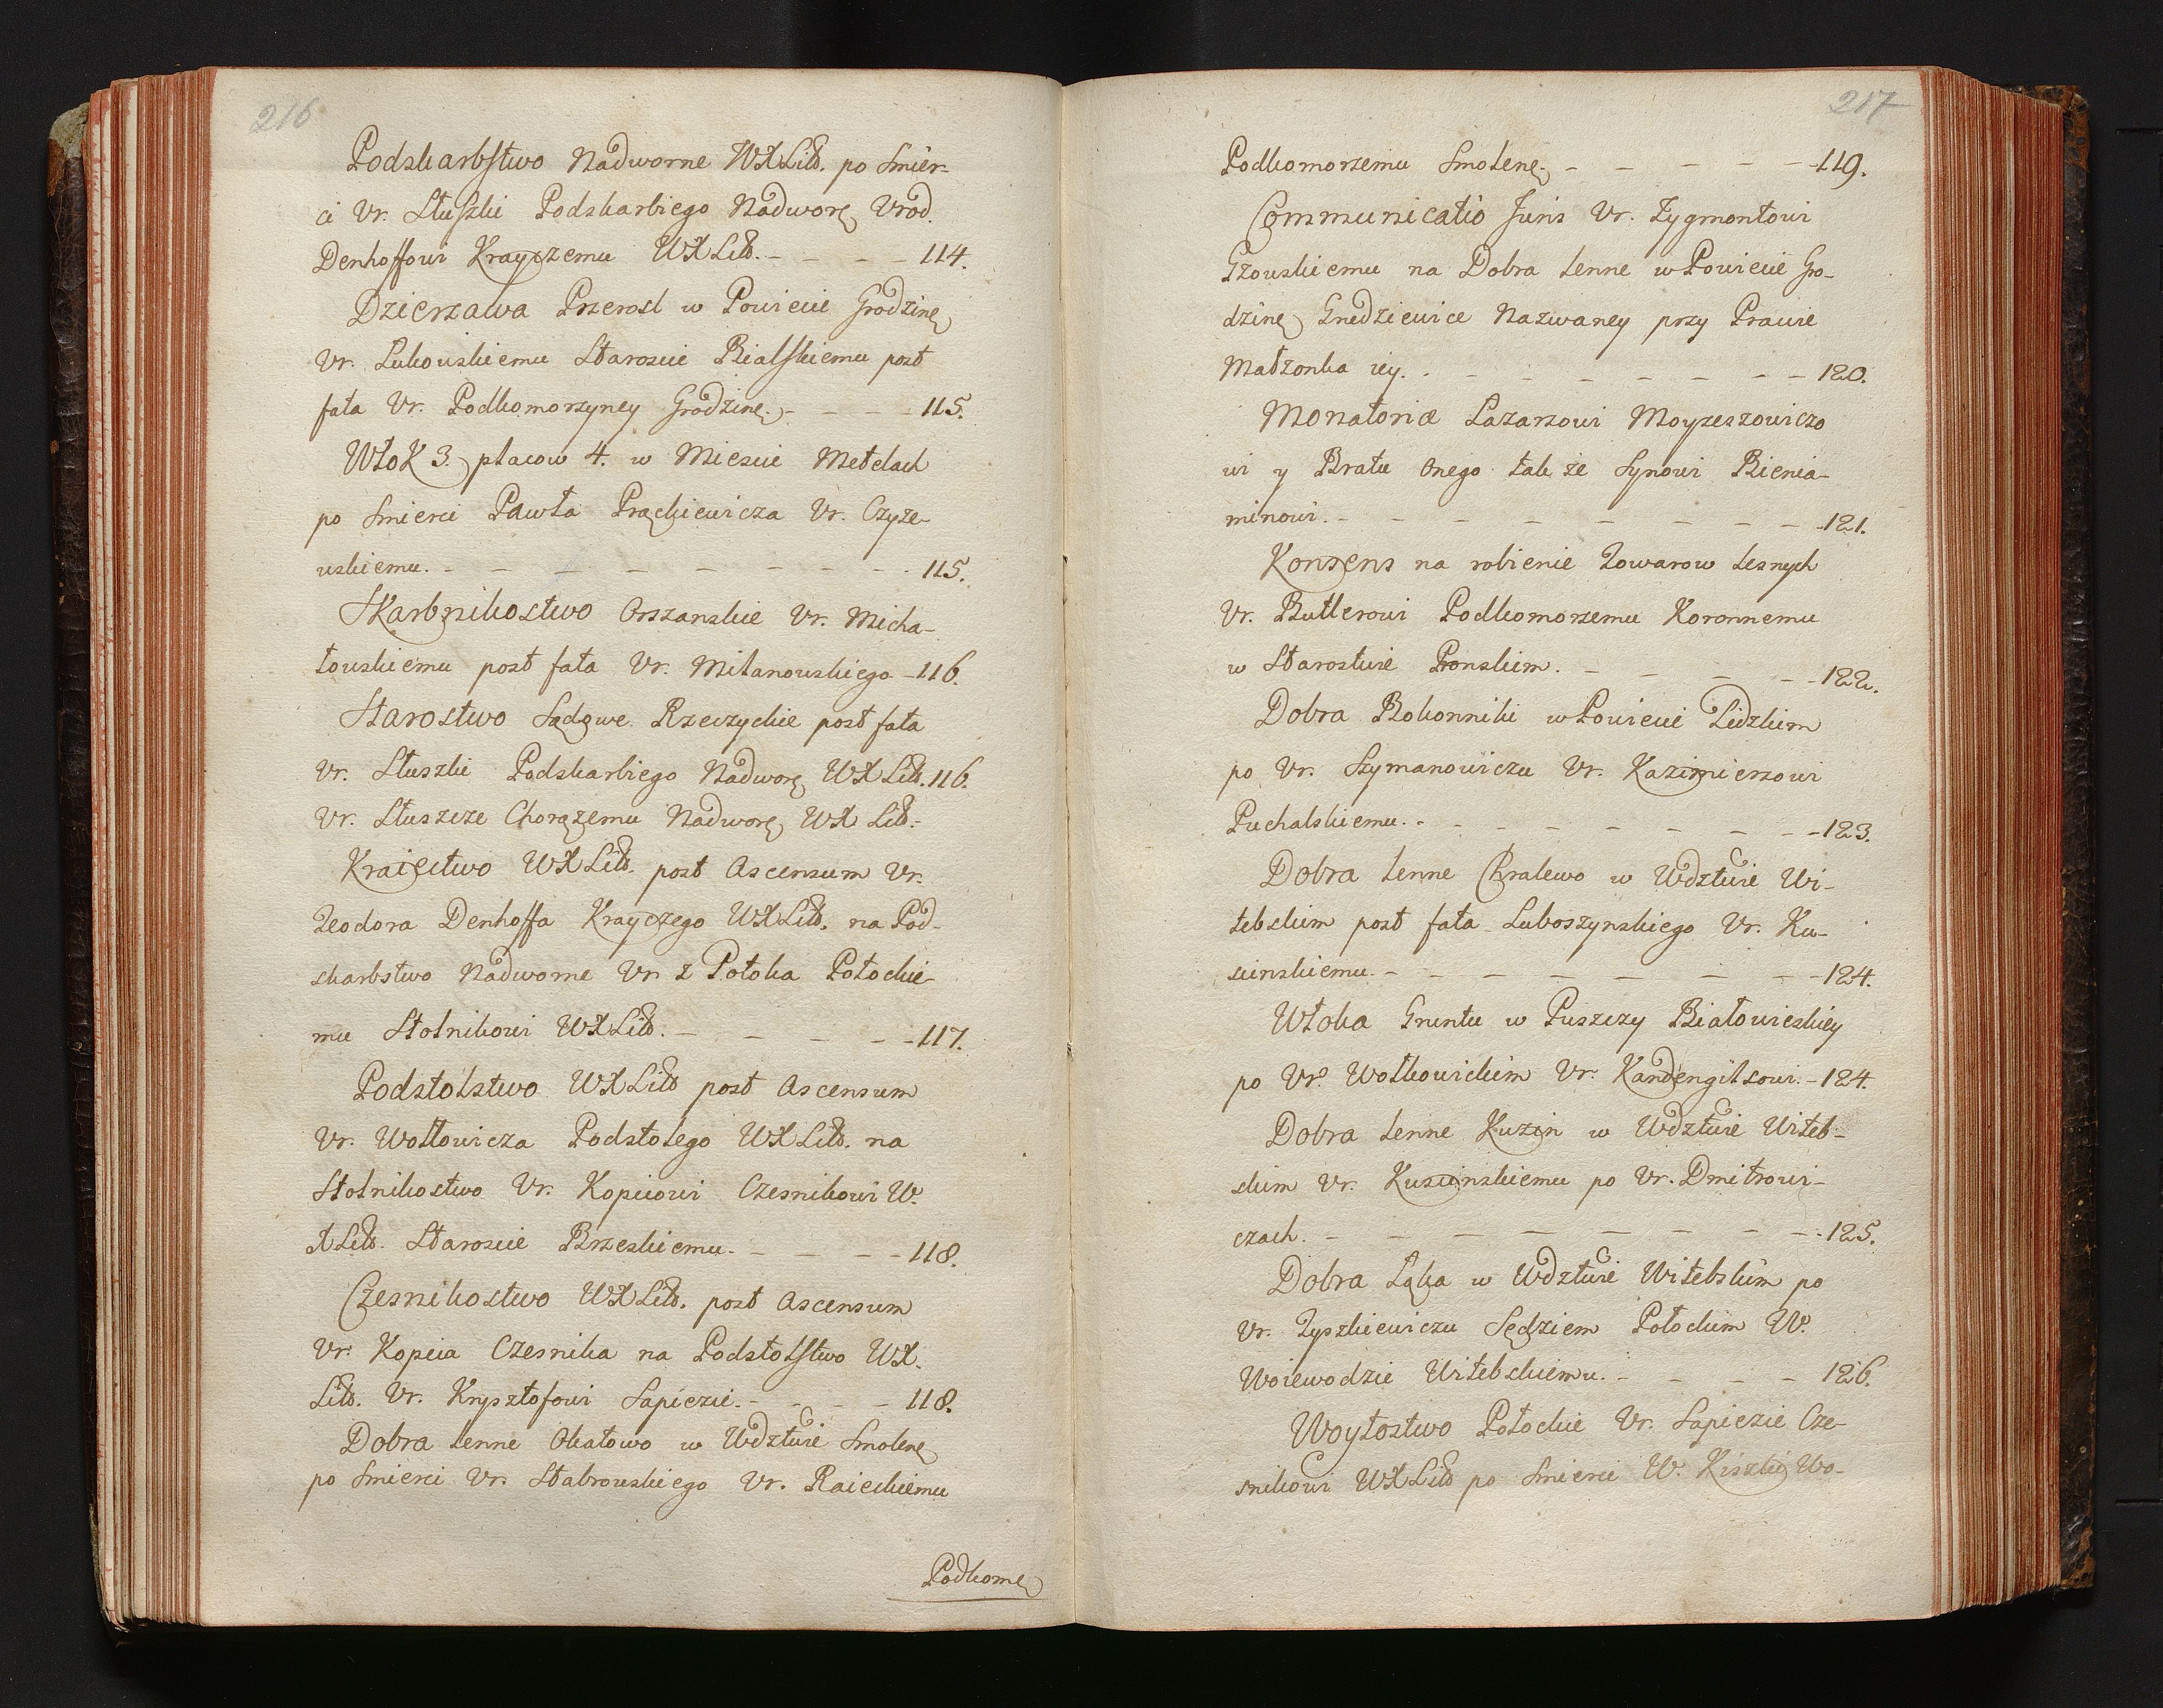 216
Podskarbstwo Nadworne WXLitt. po Smier-
ci Ur. Słuszki Podskarbiego Nadworę Urod.
Denhoffowi Krayczemu WXLitt. - - - - 114.
Dzierzawa Przerosl w Powiecie Grodzinę
Ur. Lukowskiemu Staroscie Bialskiemu post
fata Ur. Podkomorzyney Grodzinę. - - - 115.
Włok 3. placow 4. w Miescie Metelach
po Smierci Pawła Prąckiewicza Ur. Czyze-
wskiemu. - - - - - - - - - 115.
Skarbnikostwo Orszanskie Ur. Micha-
łowskiemu post fata Ur. Milanowskiego - 116.
Starostwo Sądowe Rzeczyckie post fata
Ur. Słuszki Podskarbiego Nadworę WXLitt. 116.
Ur. Słuszcze Chorązemu Nadworę WX Litt.
Kraiectwo WXLitt. post Ascensum Ur.
Teodora Denhoffa Krayczego WXLitt. na Pod-
skarbstwo Nadworne Ur. z Potoka Potockie-
mu Stolnikowi WXLitt. - - - - - 117.
Podstolstwo WXLitt post Ascensum
Ur. Wołłowicza Podstolego WXLitt. na
Stolnikostwo Ur. Kopciowi Czesnikowi W.
XLitt. Staroscie Brzeskiemu. - - - - 118.
Czesnikostwo WXLitt. post Ascensum
Ur. Kopcia Czesnika na Podstolstwo WX.
Litt. Ur. Krysztofowi Sapiezie. - - - - 118.
Dobra lenne Okatowo w Wdztwie Smolenę
po Smierci Ur. Stabrowskiego Ur. Raieckiemu
Podkomę
217
Podkomorzemu Smolenę. - - - - - 119.
Communicatio Juris Ur. Zygmontowi
Gzowskiemu na Dobra lenne w Powiecie Gro-
dzinę Gnedziewice Nazwaney przy Prawie
Małzonka iey. - - - - - - - - 120.
Monatoriæ Lazarzowi Moyzeszowiczo
wi y Bratu onego tak ze Synowi Bienia-
minowi. - - - - - - - - - 121.
Konsens na robienie Towarow Lesnych
Ur. Butlerowi Podkomorzemu Koronnemu
w Starostwie Pronskim. - - - - - 122.
Dobra Bokonniki w Powiecie Lidzkim
po Ur. Szymanowiczu Ur. Kazimierzowi
Puchalskiemu. - - - - - - - - 123.
Dobra lenne Chralewo w Wdztwie Wi-
tebskim post fata Luboszynskiego Ur. Ku-
scinskiemu. - - - - - - - - 124.
Włoka Gruntu w Puszczy Białowieskiey
po Ur. Wołkowickim Ur. Kandengilsowi. - 124.
Dobra lenne Kuzin w Wdztwie Witeb-
skim Ur. Kuscinskiemu po Ur. Dmitrowi-
czach. - - - - - - - - - 125.
Dobra Łąka w Wdztwie Witebskim po
Ur. Tyszkiewiczu Sędziem Połockim W.
Woiewodzie Witebskiemu. - - - - 126.
Woytostwo Połockie Ur. Sapiezie Cze-
snikowi WXLitt po Smierci W. Kiszki Wo-